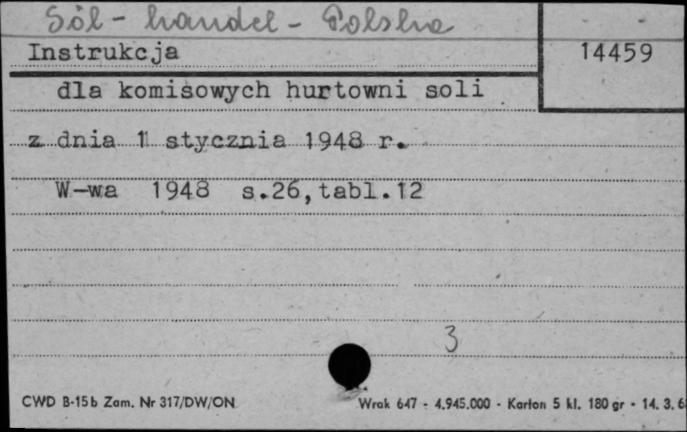 Sól - handel - Polska
Instrukcja
14459
dla komisowych hurtowni soli
z dnia 1 stycznia 1948 r.
W-wa 1948 s.26,tabl.12
3
CWD B-15b Zam. Nr 317/DW/ON
Wrak 647 - 4.945.000 - Karton 5 kl. 180 gr - 14. 3. 6